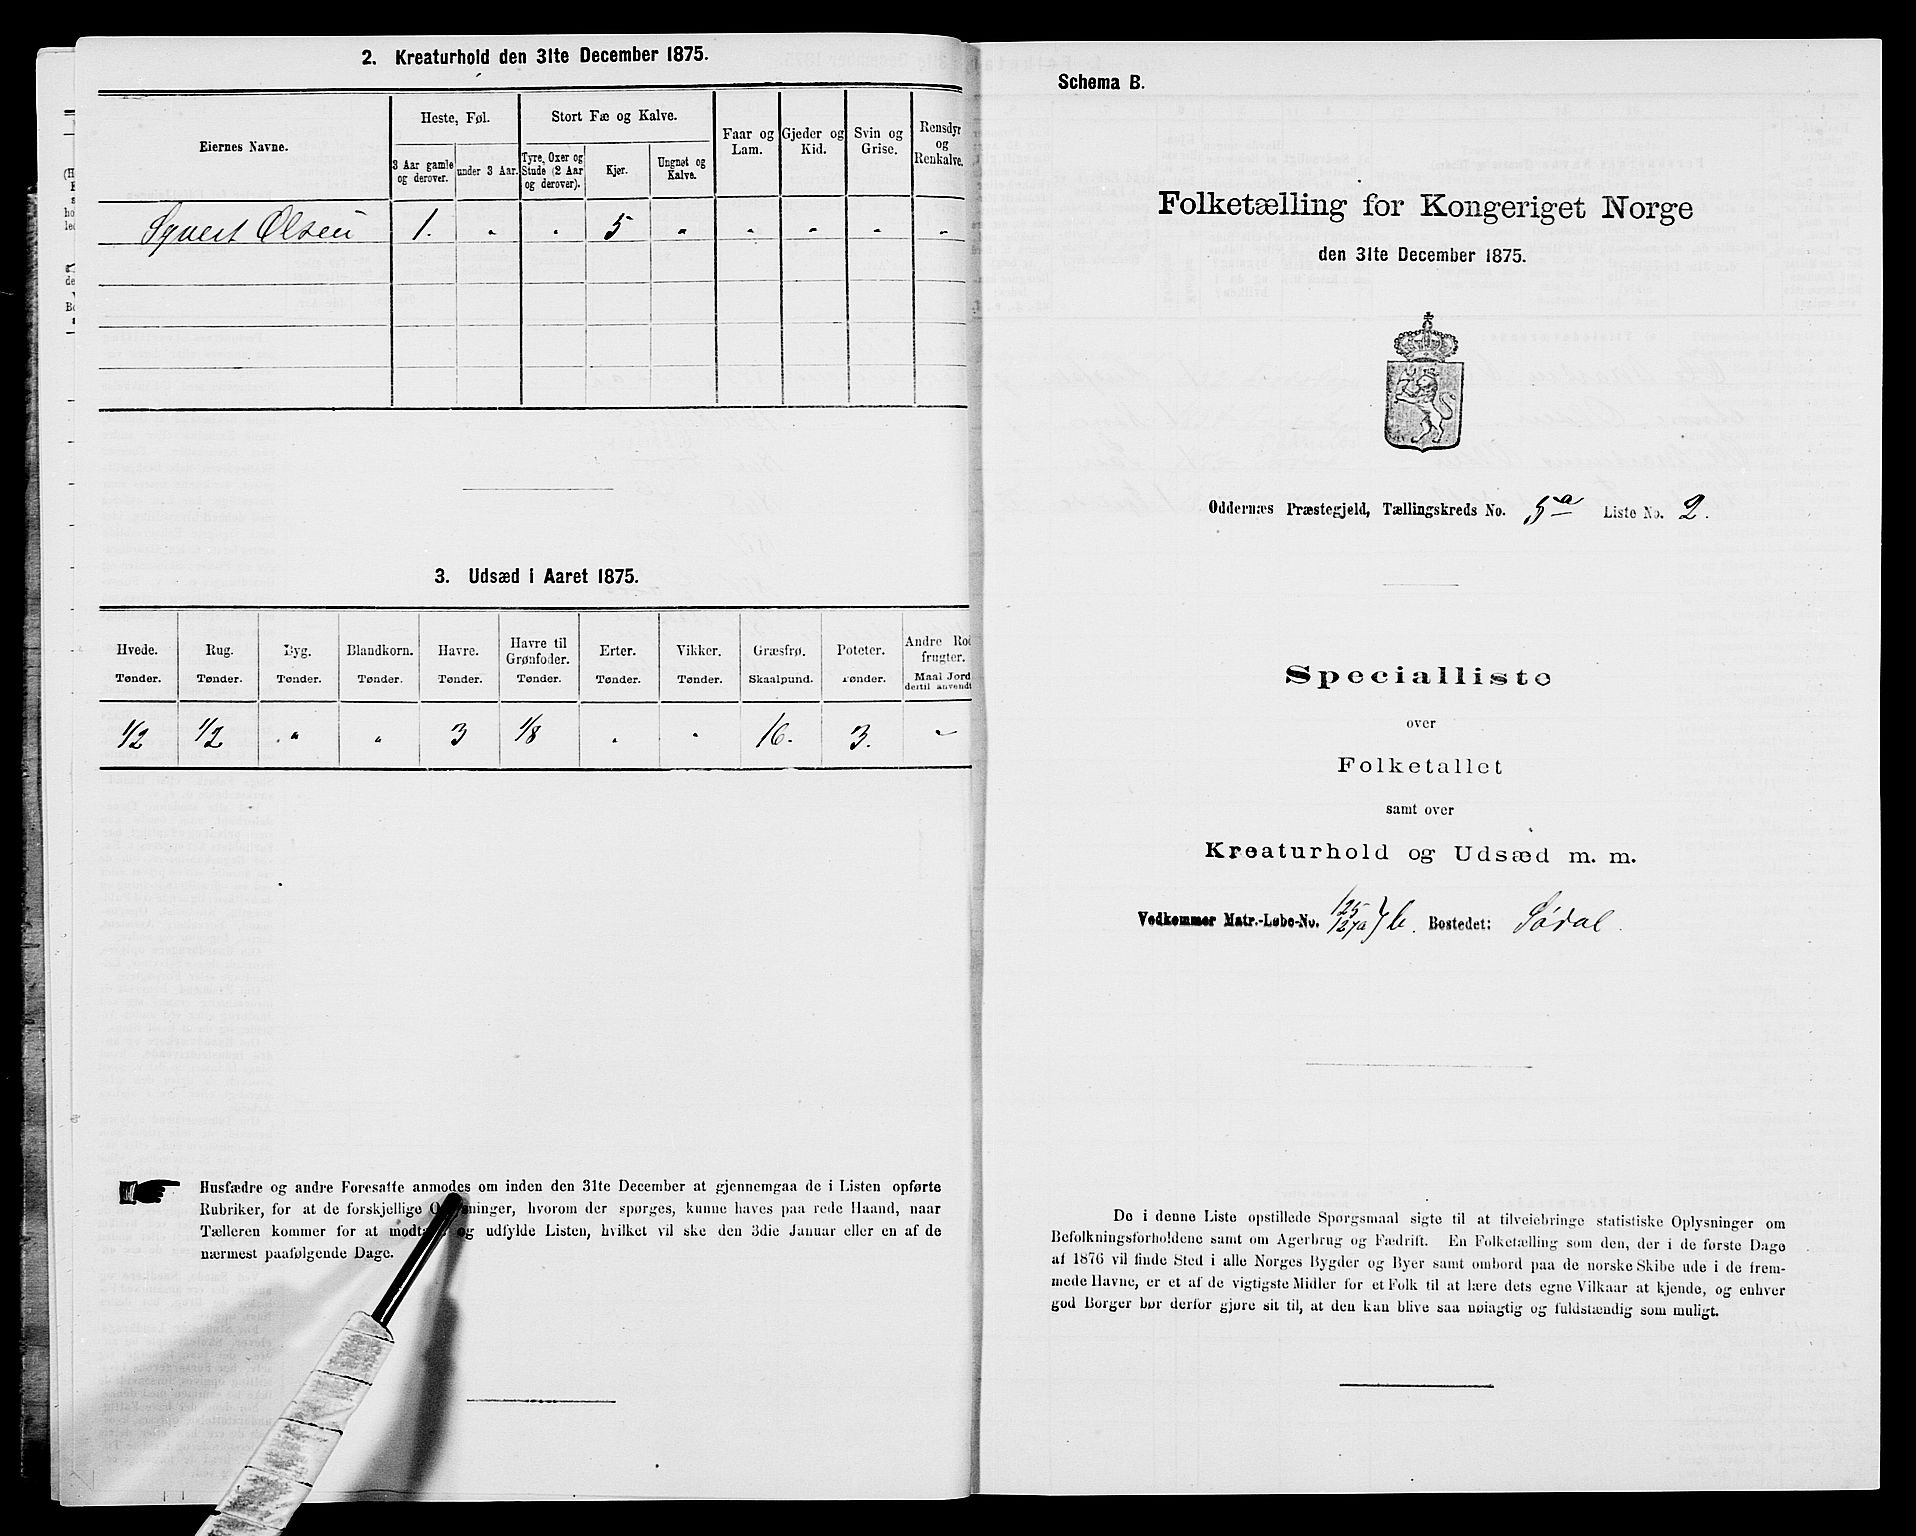 2. Kreaturhold den 31te December 1875.
Eiernes Navne.
Heste, Føl.
Stort Fæ og Kalve.
Faar og Lam.
Gjeder og Kid.
Svin og Grise.
Rensdyr og Renkalve.
3 Aar gamle og derover.
under 3 Aar.
Tyre, Oxer og Stude (2 Aar og derover).
Kjør.
Ungnøt og Kalve.
Syvert Olsen 1. " " 5 " " " " "
3. Udsæd i Aaret 1875.
Hvede. Rug. Byg. Blandkorn. Havre. Havre til Grønfoder. Erter. Vikker. Græsfrø. Poteter. Andre Rodfrugter.
Tønder. Tønder. Tønder. Tønder. Tønder. Tønder. Tønder. Tønder. Skaalpund. Tønder. Maal Jord dertil anvendt
1/2 1/2 " " 3 1/8 " " 16. 3. "
Husfædre og andre Foresatte anmodes om inden den 31te December at gjennemgaa de i Listen opførte
Rubriker, for at de forskjellige Oplysninger, hvorom der spørges, kunne haves paa rede Haand, naar
Tælleren kommer for at modtage og udfylde Listen, hvilket vil ske den 3die Januar eller en af de
nærmest paafølgende Dage.
Schema B.
Folketælling for Kongeriget Norge
den 31te December 1875.
Oddernæs Præstegjeld, Tællingskreds No. 5a Liste No. 2.
Specialliste
over
Folketallet
samt over
Kreaturhold og Udsæd m. m.
Vedkommer Matr.-Løbe-No. 125/127a/b. Bostedet: Sødal.
De i denne Liste opstillede Spørgsmaal sigte til at tilveiebringe statistiske Oplysninger om
Befolkningsforholdene samt om Agerbrug og Fædrift. En Folketælling som den, der i de første Dage
af 1876 vil finde Sted i alle Norges Bygder og Byer samt ombord paa de norske Skibe ude i de frem-
mede Havne, er et af de vigtigste Midler for et Folk til at lære dets egne Vilkaar at kjende, og enhver
god Borger bør derfor gjøre sit til, at den kan blive saa nøiagtig og fuldstændig som muligt.